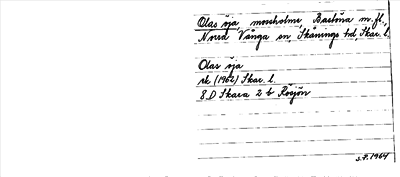 Olas öja, mossholme, Bastöna m.fl.,
Norra Vånga sn, Skånings hd, Skar. l.
Olas öja
rk (1962) Skar. l.
8 D Skara 2 b Rösjön
S.F. 1964